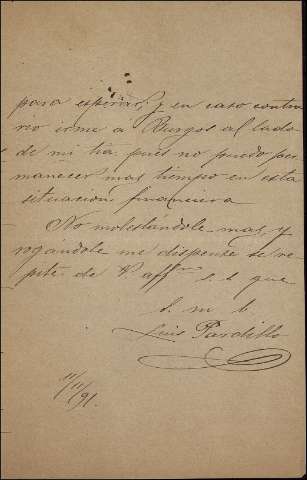 para esperar; y en caso contra
rio irme a Burgos al lado
de mi tia pues no puedo per
manecer mas tiempo en esta
situacion financiera
No molestándole mas, y
rogándole me dispense se re
pite de V. affmo s. s. que
s. m. b.
Luis Pardillo
11/11/91.